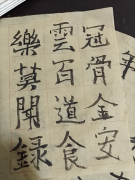 冠骨金安
雲百道食
樂莫聞録